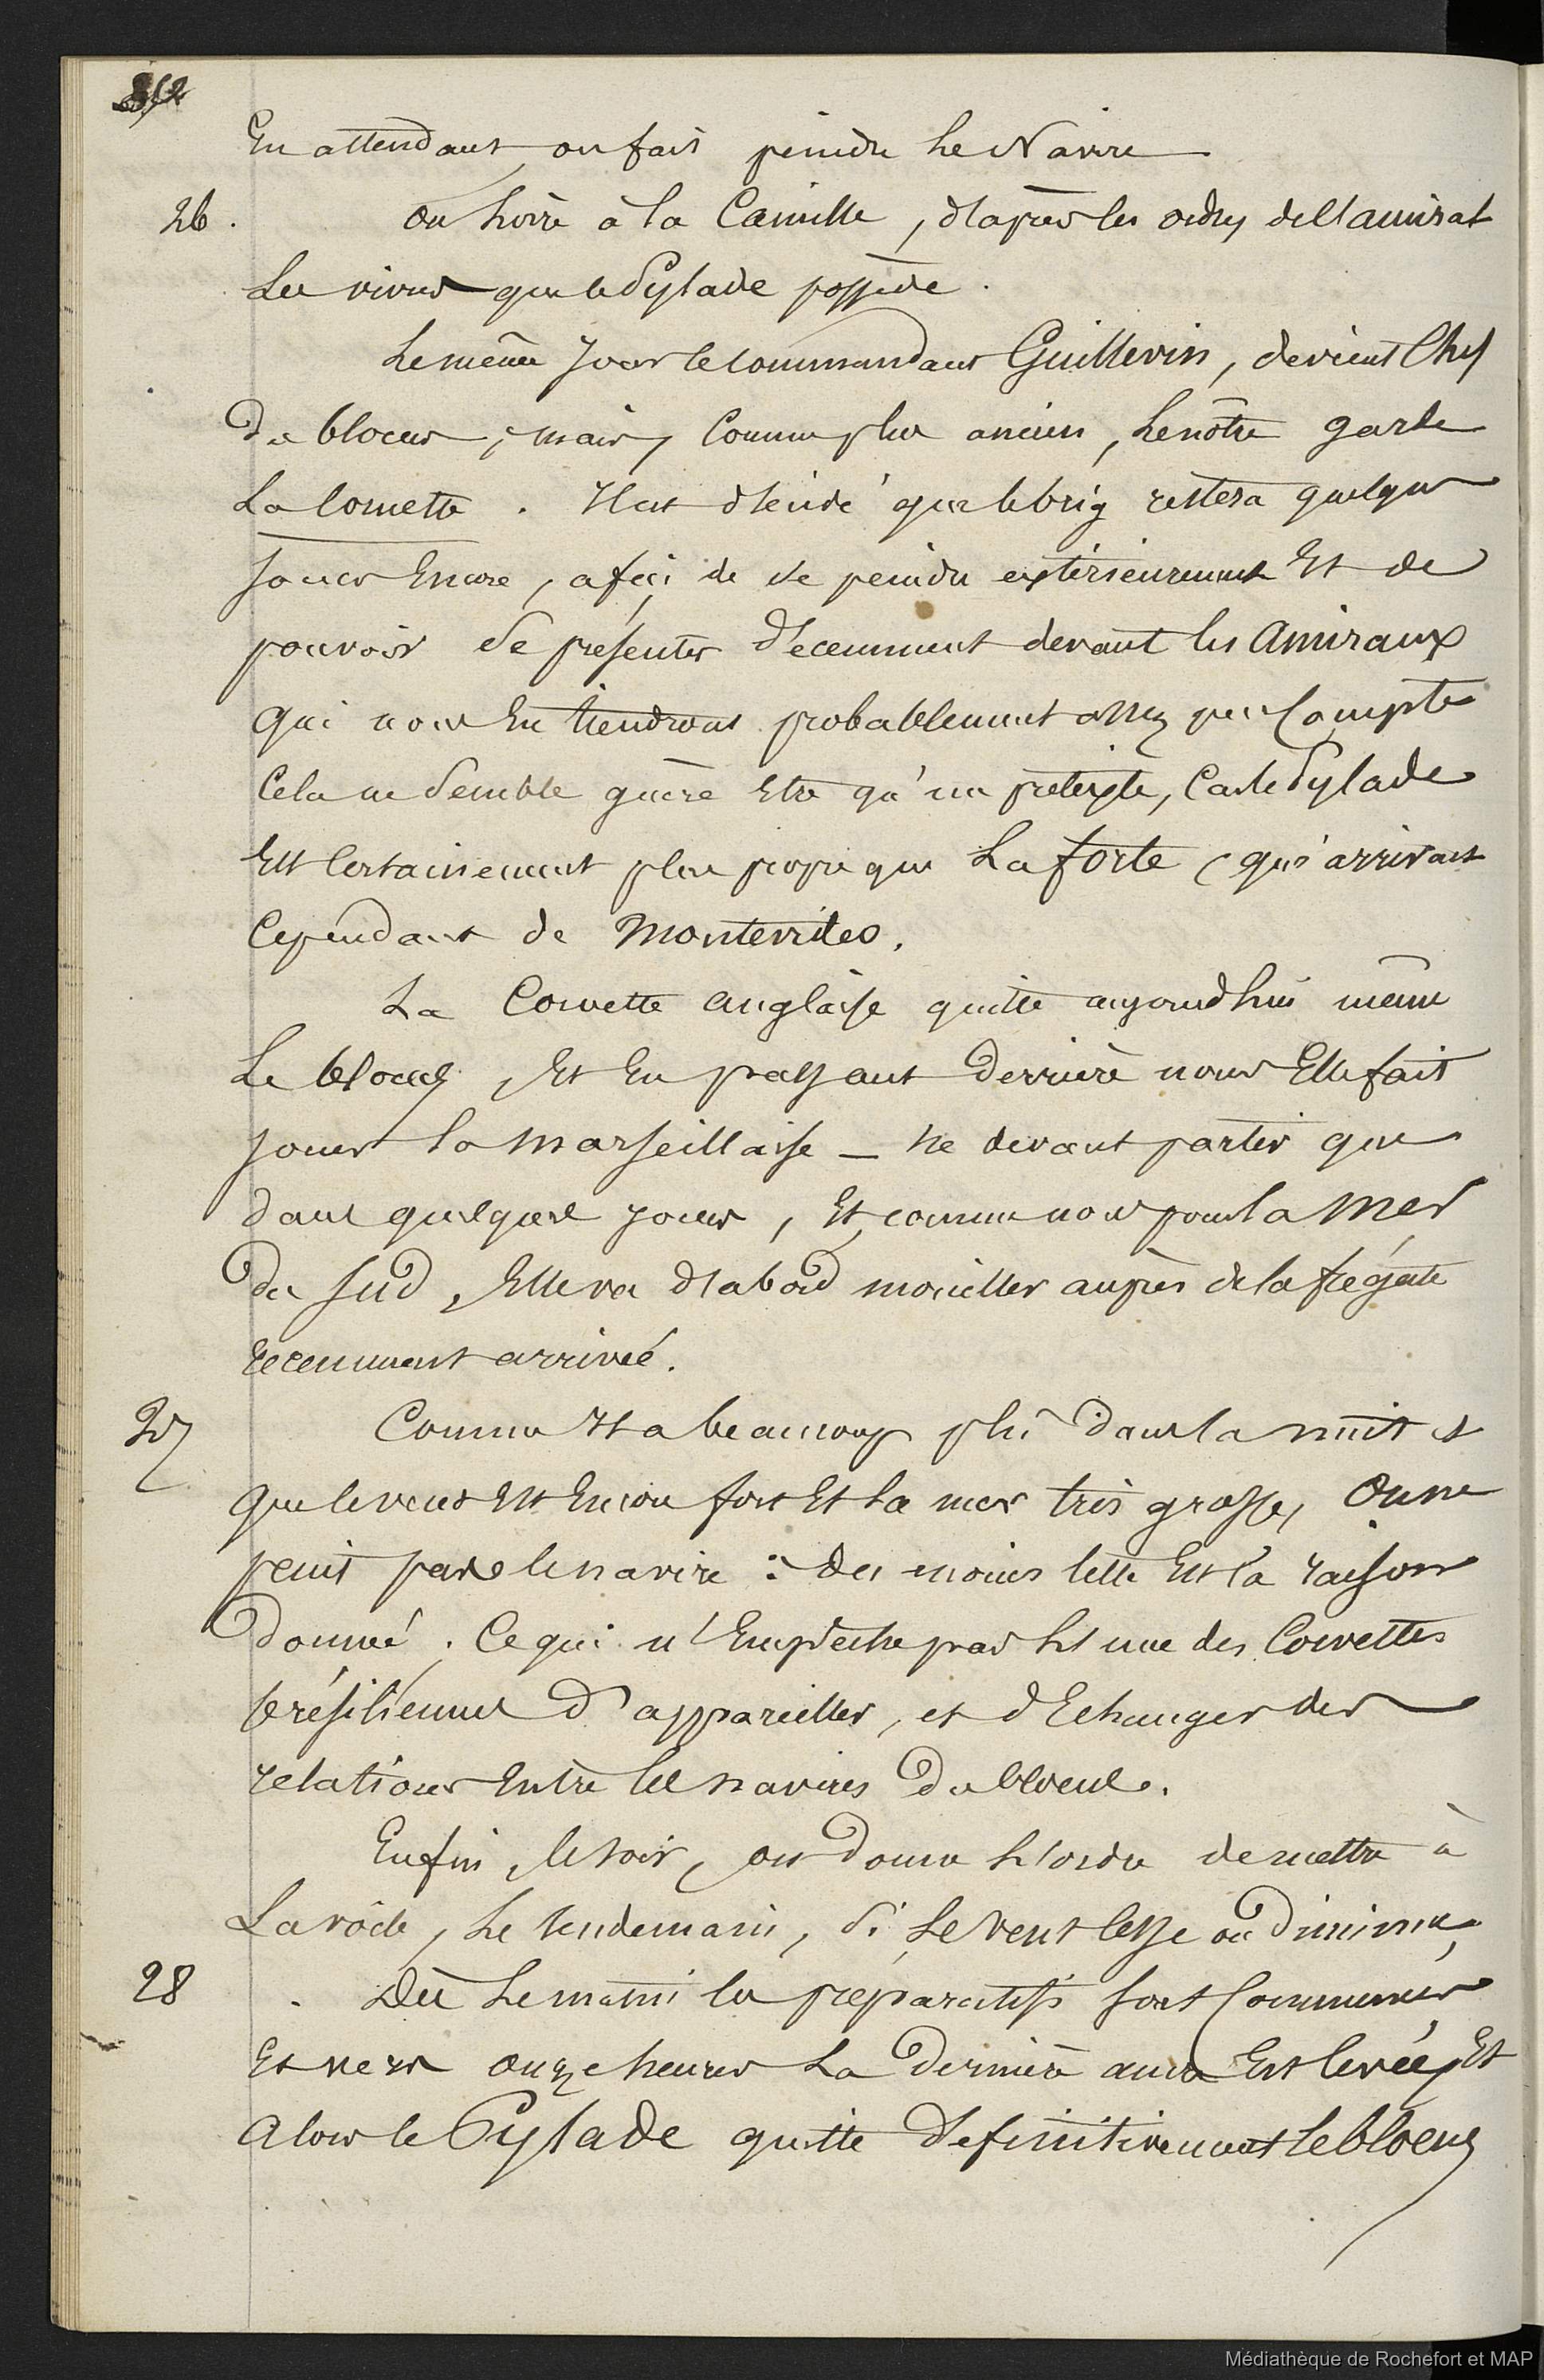 En attendant on fait peindre Le Navire
26. On livre à la Camille, d'après les ordres de l'amiral
Les vivres que le Pylade possède.
Le même Jour le commandant Guillevin, devient Chef
du blocus, mais, Comme plus ancien, Le nôtre garde
La Cornette. Il est décidé que le brig restera quelques
Jours Encore, afin de se peindre extérieurement Et de
pouvoir se présenter décemment devant les Amiraux
qui nous En tiendront probablement assez peu Compte
Cela ne semble guère Etre qu'un prétexte, Car le Pylade
Est Certainement plus propre que La forte qui arrivait
Cependant de Montevideo.
La Corvette anglaise quitte aujourd'hui même
Le blocus, Et En passant Derrière nous Elle fait
jouer la Marseillaise _ Ne devant partir que
dans quelques jours, Et comme nous pour la Mer
du Sud, Elle va d'abord mouiller auprès de la frégate
recemment arrivée.
27 Comme Il a beaucoup plu dans la nuit et
que le vent Est Encore fort Et La mer très grosse, On ne
peint pas le navire : du moins telle Est la raison
Donnée. Ce qui n'Empêche pas L'une des Corvettes
brésiliennes d'appareiller, et d'Echanger des
relations Entre les navires Du blocus.
Enfin, le soir, on Donne L'ordre de mettre à
La voile, Le lendemain, si Le vent Cesse ou Diminue,
28 Dès Le matin les préparatifs sont Commencés
Et vers onze heures La Dernière ancre Est levée, Et
Alors le Pylade quitte Définitivement le blocus
Médiathèque de Rochefort et MAP